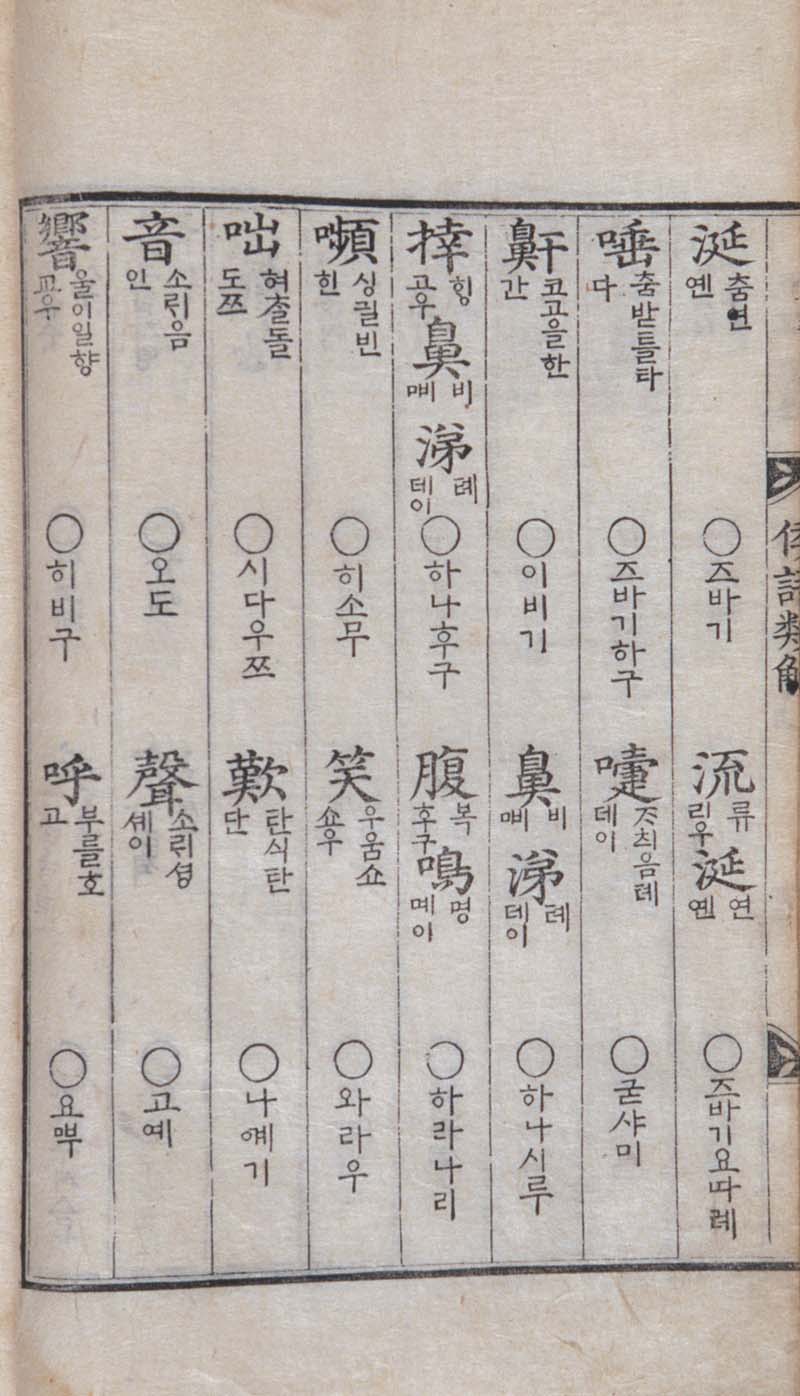 倭語類解
涎 춤연 옌 ○즈바기 流 류 리우 涎 연 옌 ○즈바기요따례
唾 춤받틀타 다 ○즈바기하구 嚔 ᄌᆞᄎᆡ음톄 데이 ○굳샤미
鼾 코고을한 간 ○이비기 鼻 비 ᄜᅵ 涕 톄 데이 ○하나시루
㨘 힝 고우 鼻 비 ᄜᅵ 涕 톄 데이 ○하나후구 腹 복 호구 鳴 명 메이 ○하라나리
嚬 싱긜빈 힌 ○히소무 笑 우움쇼 쇼우 ○와라우
咄 혀ᄎᆞᆯ돌 도쯔 ○시다우쯔 歎 탄식탄 단 ○나ᅁᅨ기
音 소ᄅᆡ음 인 ○오도 聲 소ᄅᆡ셩 셰이 ○고예
響 울이일향 교우 ○히비구 呼 부를호 고 ○요ᄜᅮ